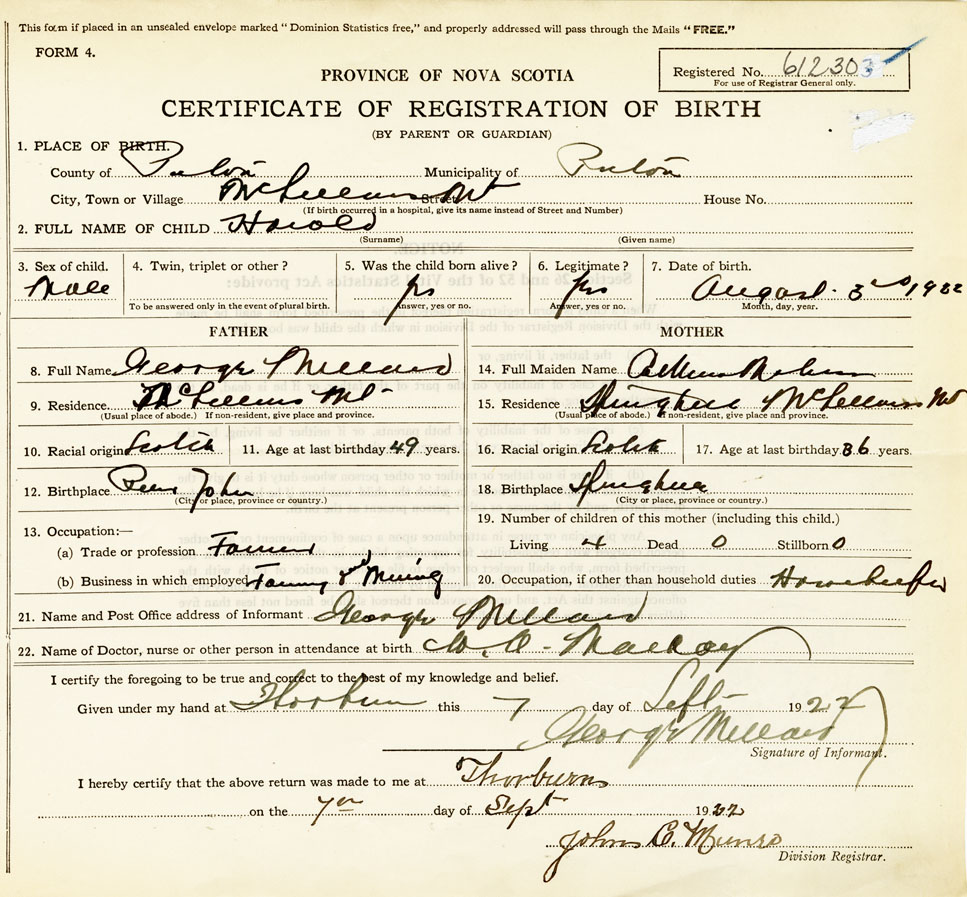 This form if placed in an unsealed envelope marked "Dominion Statistics free," and properly addressed will pass through the Mails "FREE."
FORM 4.
Registered No. 612303
For use of Registrar General only.
PROVINCE OF NOVA SCOTIA
CERTIFICATE OF REGISTRATION OF BIRTH
(BY PARENT OR GUARDIAN)
1. PLACE OF BIRTH.
County of Pictou Municipality of Pictou
City, Town or Village McLellans Mt Street House No.
(If birth occurred in a hospital, give its name instead of Street and Number)
2. FULL NAME OF CHILD Harold
(Surname) (Given name)
3. Sex of child. 4. Twin, triplet or other? 5. Was the child born alive? 6. Legitimate? 7. Date of birth.
Male yes yes August 3rd, 1922
To be answered only in the event of plural birth. Answer, yes or no. Answer, yes or no. Month, day, year.
FATHER MOTHER
8. Full Name George Millard 14. Full Maiden Name
9. Residence McLellans Mt 15. Residence McLellans Mt
(Usual place of abode.) If non-resident, give place and province. (Usual place of abode.) If non-resident, give place and province.
10. Racial origin Scotch 11. Age at last birthday 49 years. 16. Racial origin Scotch 17. Age at last birthday 36 years.
12. Birthplace River John 18. Birthplace Springhill
(City or place, province or country.) (City or place, province or country.)
13. Occupation:— 19. Number of children of this mother (including this child.)
(a) Trade or profession Farmer Living 4 Dead 0 Stillborn 0
(b) Business in which employed Farming and Mining 20. Occupation, if other than household duties Housekeeper
21. Name and Post Office address of Informant George Millard
22. Name of Doctor, nurse or other person in attendance at birth MacKay
I certify the foregoing to be true and correct to the best of my knowledge and belief.
Given under my hand at Thorburn this 7 day of Sept 1922
George Millard
Signature of Informant.
I hereby certify that the above return was made to me at Thorburn
on the 7th day of Sept 1922
John C. Munro
Division Registrar.